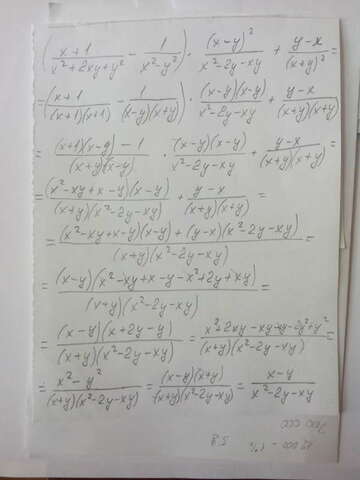 (x+1/(x²+2xy+y²) - 1/(x²-y²)) · (x-y)²/(x²-2y-xy) + (y-x)/(x+y)² =
= ((x+1)/((x+1)(x+1)) - 1/((x-y)(x+y))) · (x-y)(x-y)/(x²-2y-xy) + (y-x)/((x+y)(x+y)) =
= ((x+1)(x-y)-1)/((x+y)(x-y)) · (x-y)(x-y)/(x²-2y-xy) + (y-x)/((x+y)(x+y)) =
= (x²-xy+x-y)(x-y)/((x+y)(x²-2y-xy)) + (y-x)/((x+y)(x+y)) =
= ((x²-xy+x-y)(x-y)+(y-x)(x²-2y-xy))/((x+y)(x²-2y-xy)) =
= (x-y)(x²-xy+x-y-x²+2y+xy)/((x+y)(x²-2y-xy)) =
= (x-y)(x+2y-y)/((x+y)(x²-2y-xy)) = (x²+2xy-xy-xy-2y²+y²)/((x+y)(x²-2y-xy)) =
= (x²-y²)/((x+y)(x²-2y-xy)) = (x-y)(x+y)/((x+y)(x²-2y-xy)) = (x-y)/(x²-2y-xy)